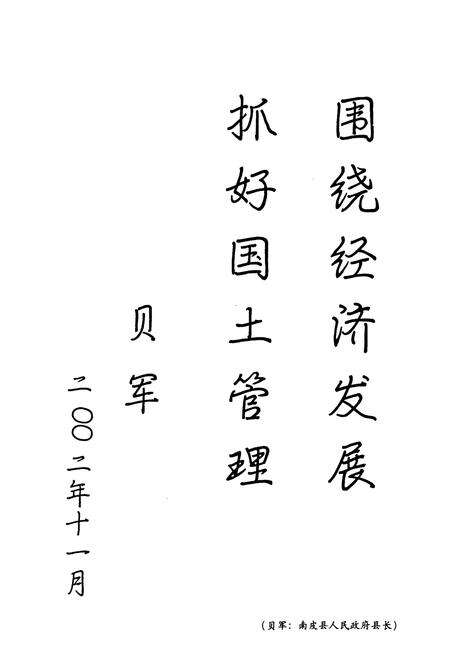 围绕经济发展
抓好国土管理
贝军
二〇〇二年十一月
（贝军：南皮县人民政府县长）